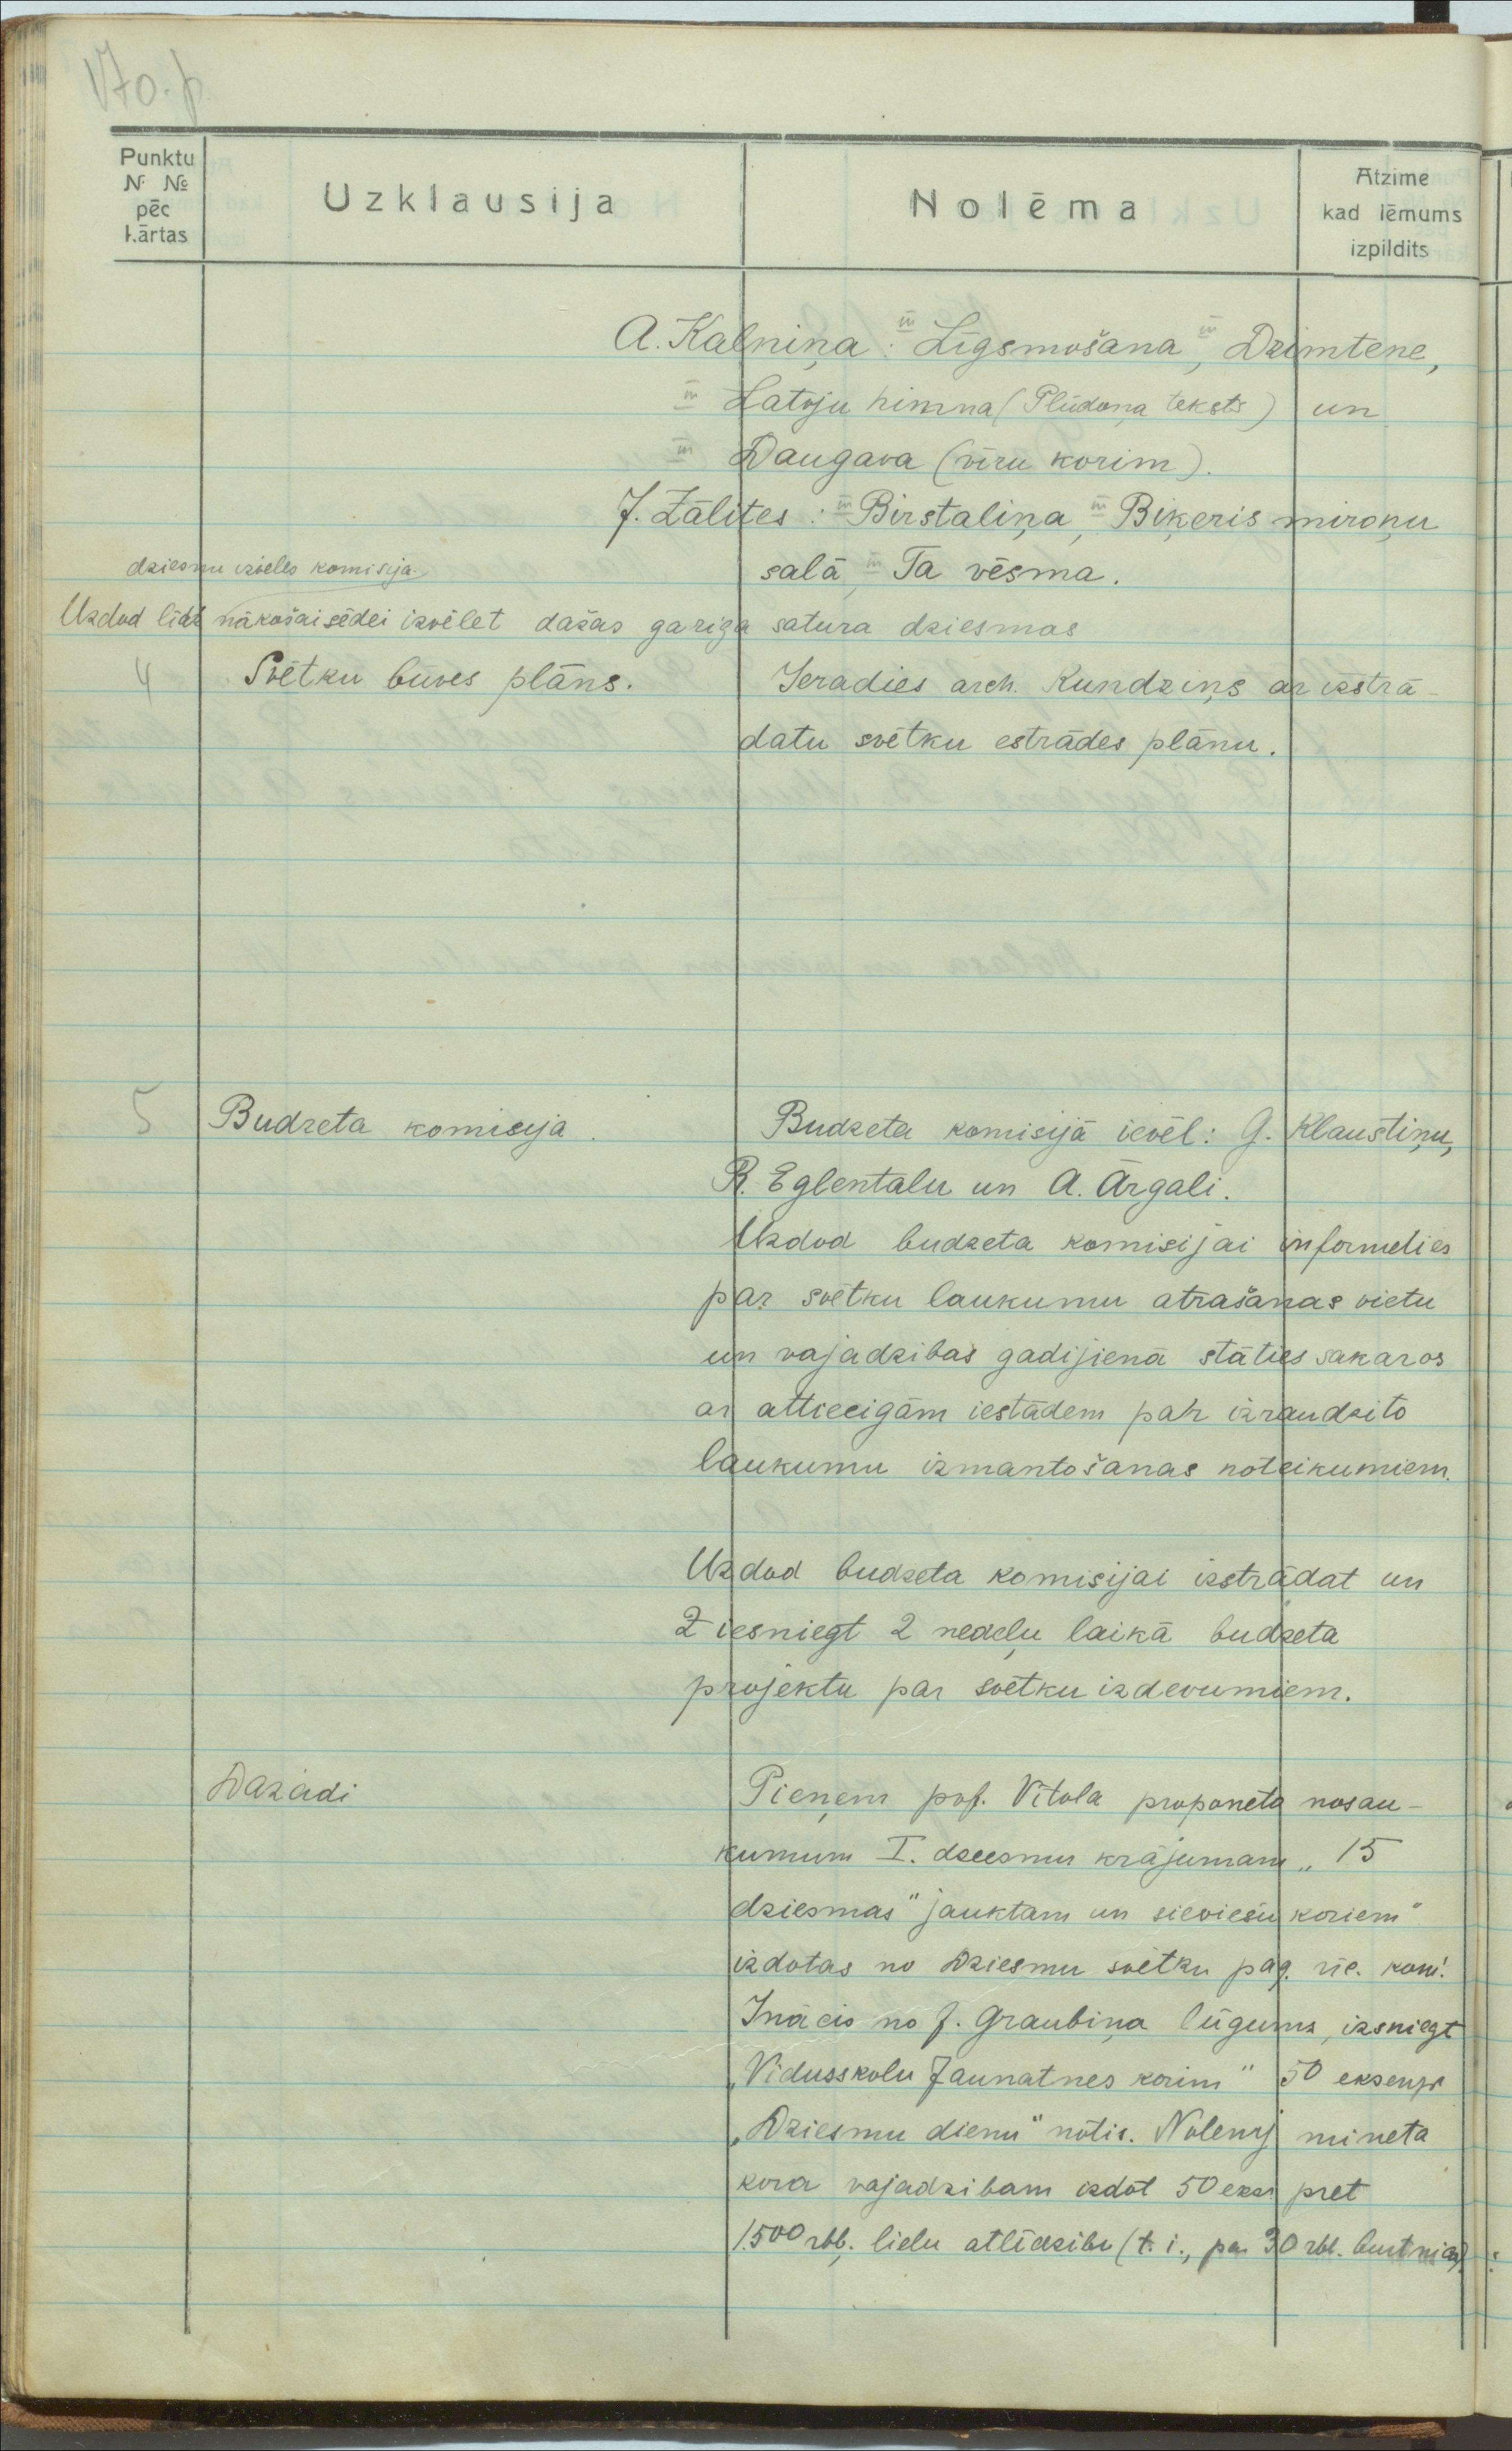 170. p.
Punktu
N. №
pēc
kārtas
Uzklausija
Nolēma
Atzime
kad lēmums
izpildits
A. Kalniņa : Līgsmošana, Dzimtene,
Latvju himna (Plūdoņa teksts) un
Daugava (vīru korim).
J. Zālites : Birstaliņa, Biķeris miroņu
salā, Ta vēsma.
dziesmu izvēles komisija
Uzdod līdz nākošai sēdei izvēlet dažas gariga satura dziesmas
4 Svētku būves plāns.
Ieradies arch. Kundziņš ar izstrā-
datu svētku estrādes plānu.
5 Budzeta komisija.
Budzeta komisijā ievēl: G. Klaustiņu,
R. Eglentalu un A. Ārgali.
Uzdod budzeta komisijai informeties
par svētku laukumu atrašanas vietu
un vajadzibas gadijienā stāties sakaros
ar attiecigām iestādem par izraudzito
laukumu izmantošanas noteikumiem.
Uzdod budzeta komisijai izstrādat un
iesniegt 2 nedeļu laikā budzeta
projektu par svētku izdevumiem.
Dazadi
Pieņem prof. Vītola proponeta nosau-
kumum I. dziesmu krājumam „15
dziesmas" jauktam un sieviešu koriem"
izdotas no Dziesmu svētku pag. rīc. kom.
Inācis no J. Graubiņa lūgums, izsniegt
„Vidusskolu Jaunatnes korim" 50 eksempl
„Dziesmu dienu" nōtis. Nolemj mineta
kora vajadzibam izdōt 50 eks. pret
1.500 rbļ. lielu atlīdzibu (t. i., pa 30 rbl. burtnica).